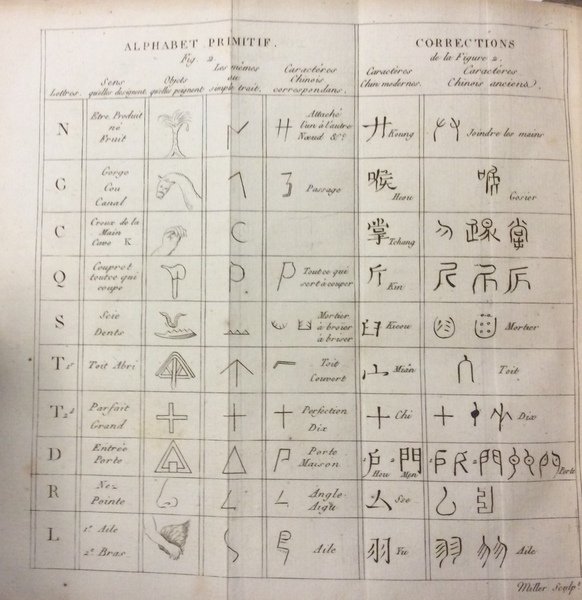 ALPHABET PRIMITIF.
Fig. 2
CORRECTIONS
de la Figure 2.
Lettres.
Sens
qu'elles désignent.
Objets
qu'elles peignent
Les mêmes
au
simple trait.
Caractères
Chinois
correspondans.
Caractères
Chin. modernes.
Caractères
Chinois anciens.
N
Etre Produit
né
Fruit
Attaché
l'un à l'autre
Nœud &c.
廾 Koung
Joindre les mains
G
Gorge
Cou
Canal
Passage
喉 Heou
Gosier
C
Creux de la
Main
Cave K
掌 Tchang
Q
Couperet
tout ce qui
coupe
Tout ce qui
sert à couper
斤 Kin
S
Scie
Dents
Mortier
à broier
à briser
臼 Kieou
Mortier
T 1er
Toit Abri
Toit
Couvert
宀 Mián
Toit
T 2d
Parfait
Grand
Perfection
Dix
十 Chi
Dix
D
Entrée
Porte
Porte
Maison
戶 Hou
門 Men
Porte
R
Nez
Pointe
Angle
Aigu
厶 Sse
L
1º Aile
2º Bras
Aile
羽 Yu
Aile
Miller Sculpt.